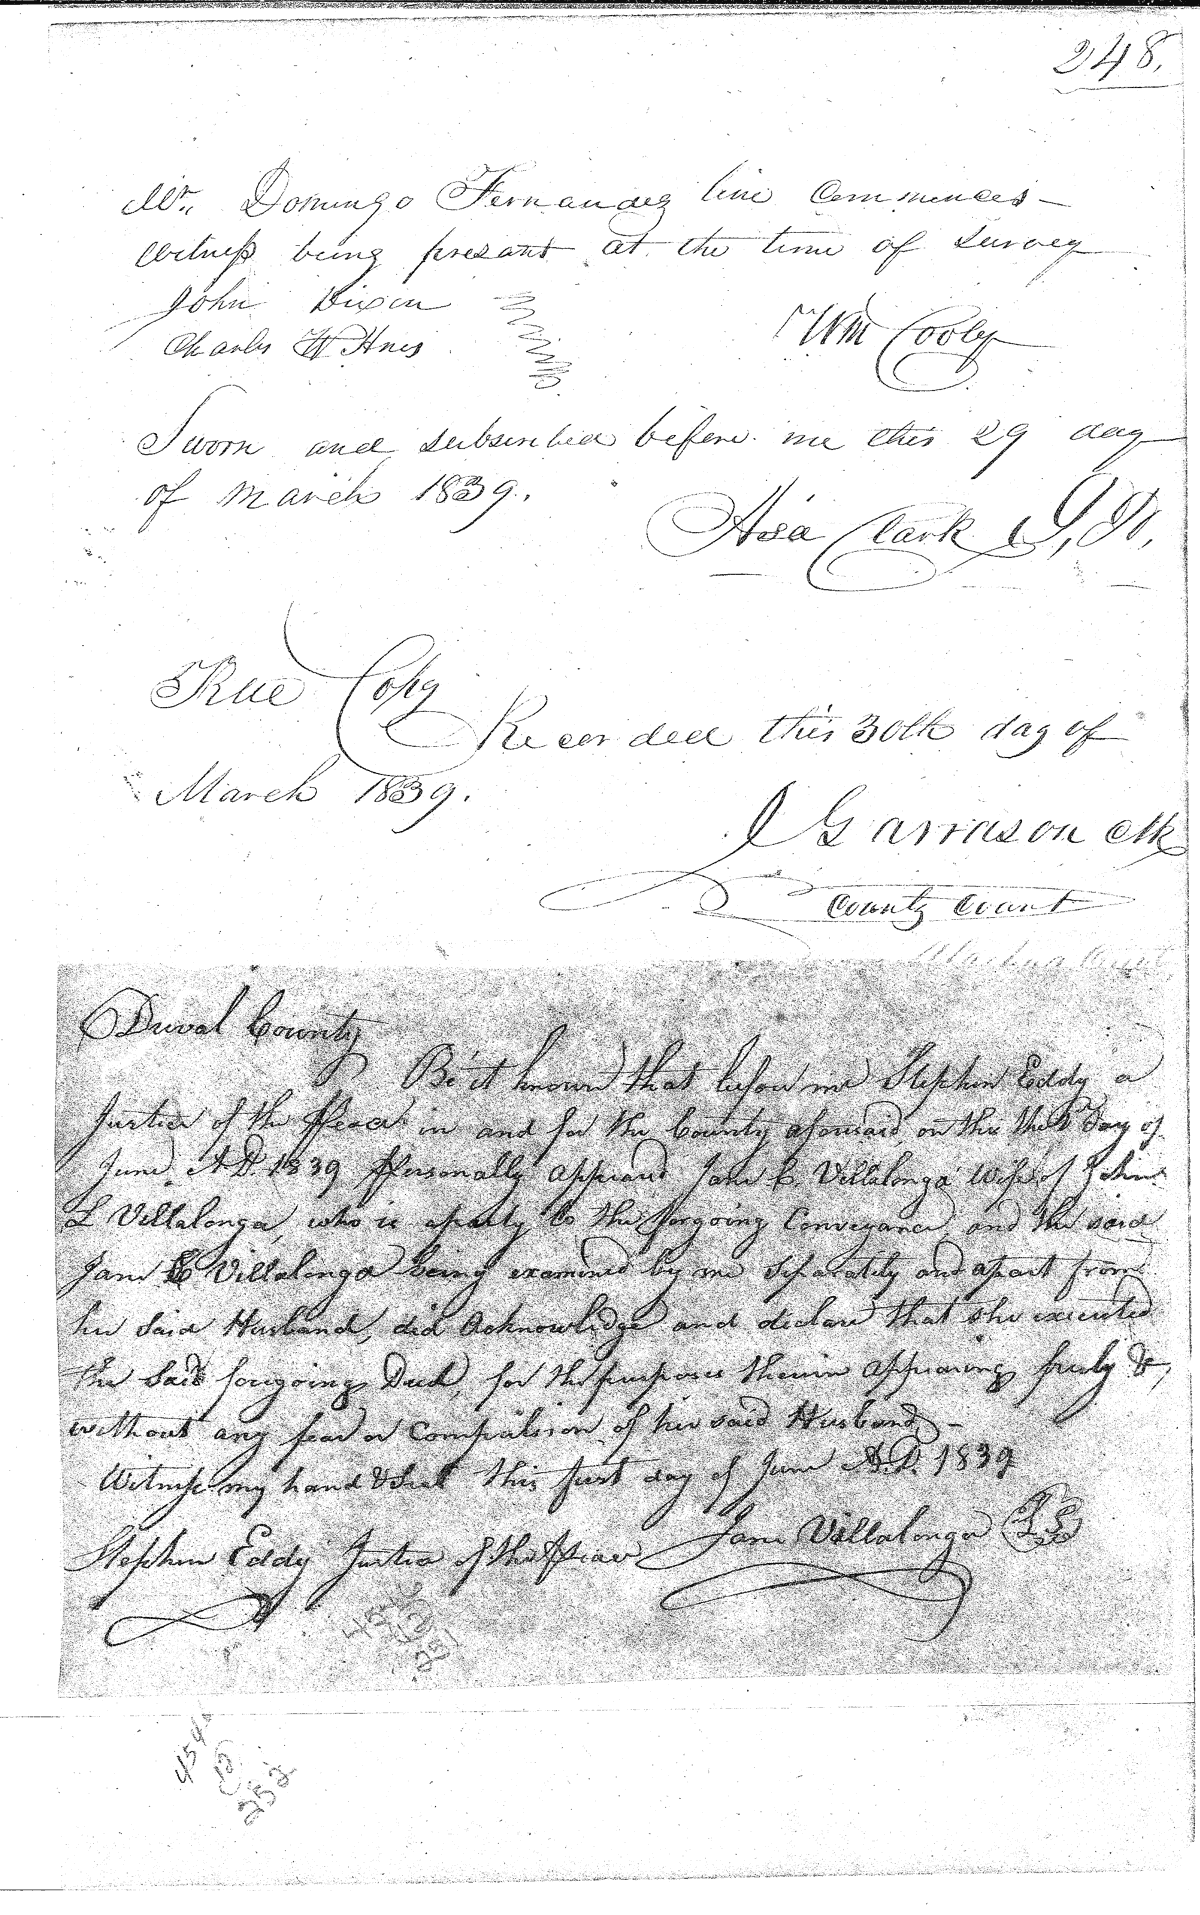 248.
Mr. Domingo Fernandez line commences—
witness being present at the time of survey
John Dixon
Wm Cooley
Charles W
Sworn and subscribed before me this 29 day
of March 1839.
Asa Clark J,P,
True Copy
Recorded this 30th day of
March 1839.
J Garrason Clk
County Court
Alachua
Duval County
Be it known that before me Stephen Eddy a
Justice of the Peace in and for the County aforesaid, on this the 1st Day of
June A D. 1839 Personally appeared Jane E. Villalonga Wife of John
L Villalonga, who is a party to the forgoing Conveyance, and the said
Jane E Villalonga being examined by me seperately and apart from
her Said Husband, did Acknowledge and declare that she executed
the Said foregoing Deed, for the purposes therein appearing freely &,
without any fear or Compulsion of her said Husband—
Witness my hand & Seal this first day of June A.D. 1839
Jane Villalonga LS
Stephen Eddy Justice of the Peace
4546
12
251
4546
12
252